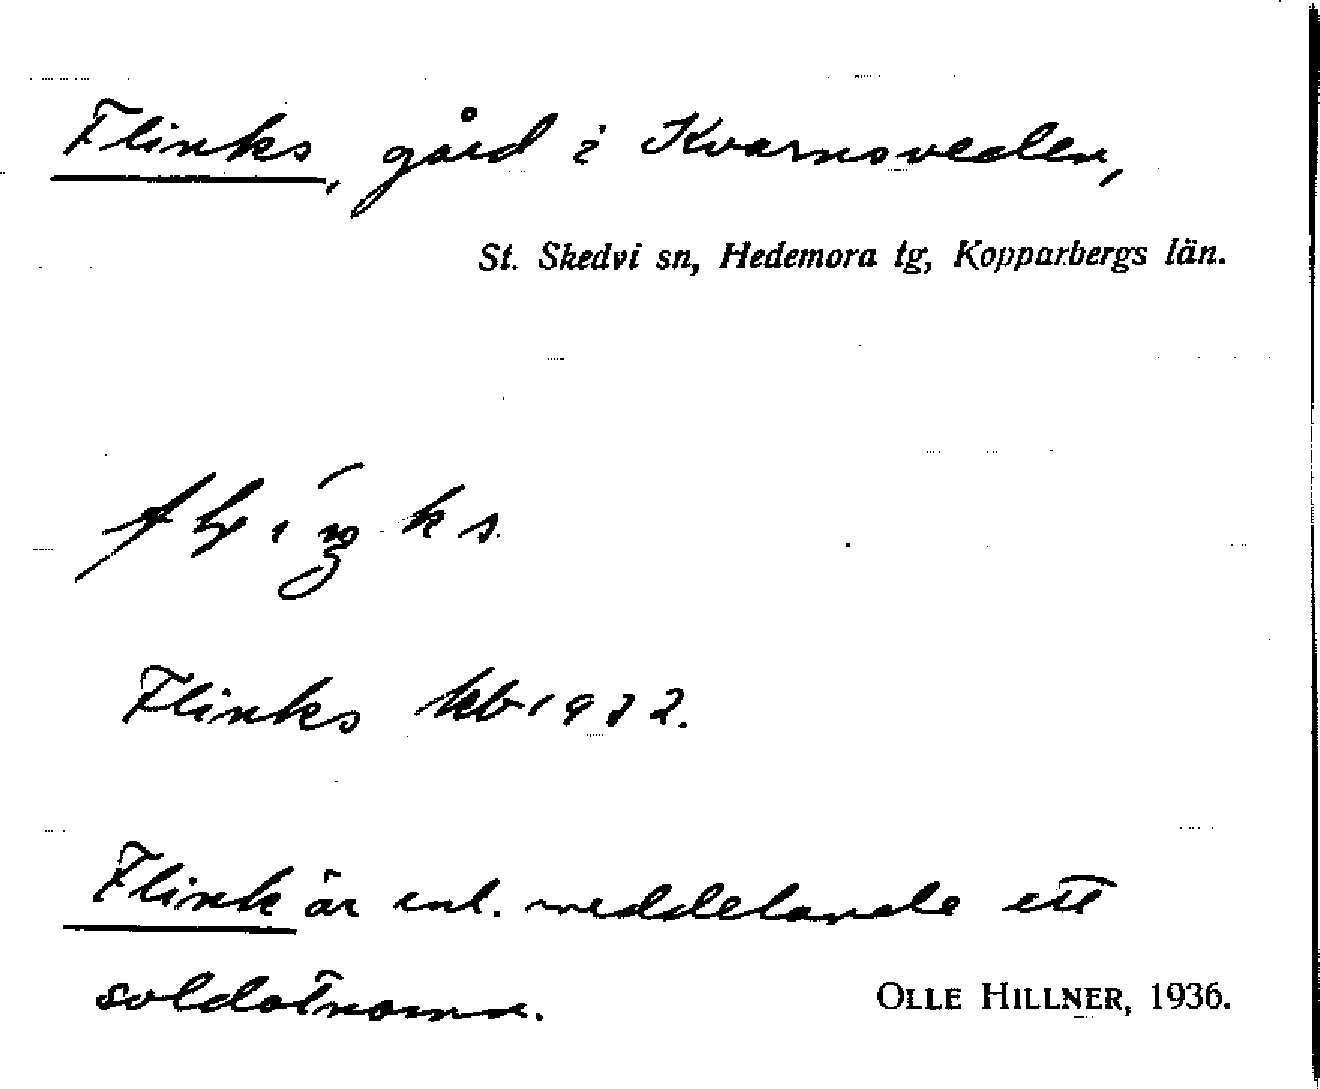 Flinks, gård i Kvarnsveden,
St. Skedvi sn, Hedemora tg, Kopparbergs län.
Flinks kb 1932.
Flink är enl. meddelande ett
soldatnamn.
OLLE HILLNER, 1936.